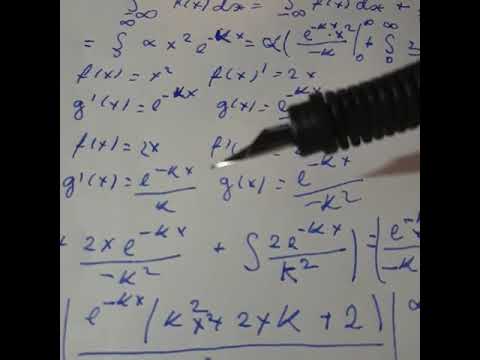 ∫_{-∞}^{∞} f(x)dx = ∫_{-∞} f(x)dx +
= ∫_0^∞ αx²e^{-Kx} = α( \frac{e^{-Kx}·x²}{-K} |_0^∞ + ∫_0^∞ 2
f(x) = x² f(x)' = 2x
g'(x) = e^{-Kx} g(x) = e^{-Kx}
f(x) = 2x f'(
g'(x) = \frac{e^{-Kx}}{K} g(x) = \frac{e^{-Kx}}{-K²}
\frac{2xe^{-Kx}}{-K²} + ∫ \frac{2e^{-Kx}}{K²}) =
| e^{-Kx}(K²x² + 2xK + 2) |